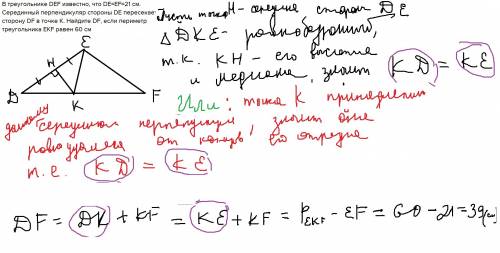 В треугольнике DEF известно, что DE=EF=21 см.
Серединный перпендикуляр стороны DE пересекает
сторону DF в точке К. Найдите DF, если периметр
треугольника EKF равен 60 см
Пусть точка H - середина сторон DE
Δ DKE - равнобедренный,
т.к. KH - его высота
и медиана, значит KD = KE
E
H
D
K
F
Или: точка K принадлежит
данному серединн перпендикуляр, значит она
равноудалена от концов его отрезка
т.е. KD = KE
DF = DK + KF = KE + KF = P EKF - EF = 60 - 21 = 39 (см)